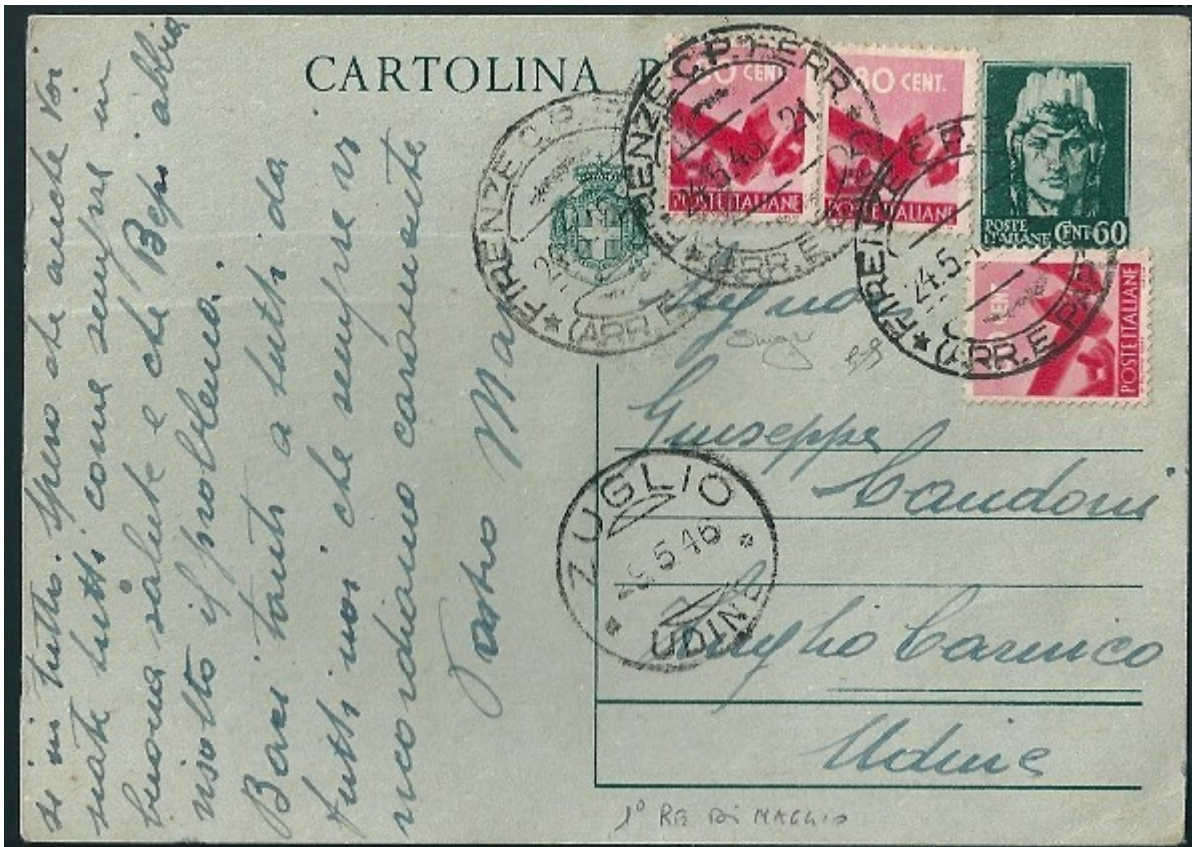 CARTOLINA P
80 CENT.
POSTE ITALIANE
80 CENT.
POSTE ITALIANE
POSTE
ITALIANE CENT 60
CENT
POSTE ITALIANE
FIRENZE C.P.
(ARR. E
FIRENZE C.P. FERR
24.5.46 21
(ARR. E
FIRENZE C.P.
24.5.
(ARR. E P
Signor
Giuseppe
Candoni
Zuglio Carnico
Udine
ZUGLIO
5.46
UDINE
1° RE DI MAGGIO
si in tutto. Spero che anche voi
siate tutti come sempre in
buona salute e che Bepi abbia
risolto il problema.
Baci tanti a tutti da
tutti noi che sempre vi
ricordiamo caramente
Vostro